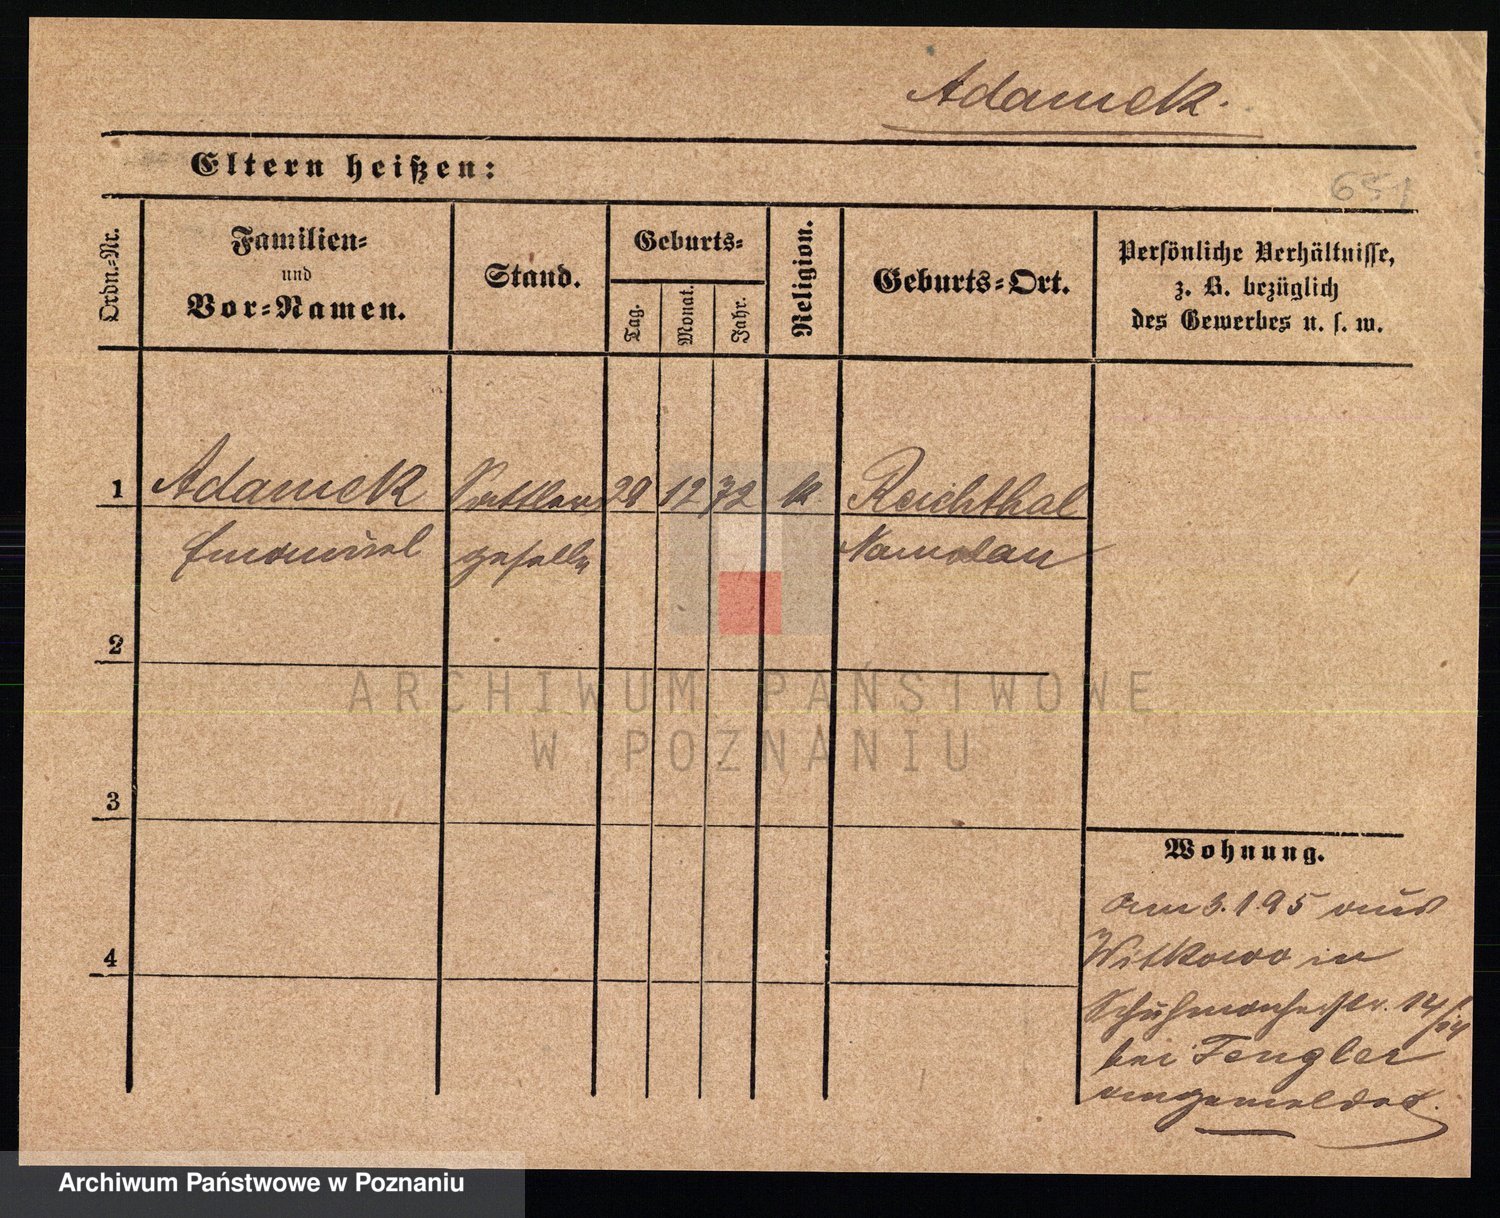 Adamek.
Eltern heißen:
651
Ordn.-Nr.
Familien-
und
Vor-Namen.
Stand.
Geburts-
Tag.
Monat.
Jahr.
Religion.
Geburts-Ort.
Persönliche Verhältnisse,
z. B. bezüglich
des Gewerbes u. s. w.
1 Adamek Sattler 29 12 72 k Reichthal
Emanuel geselle Namslau
2
3
4
Wohnung.
am 3.1.95 aus
Witkowo in
Schuhmacherstr. 14
bei Tengler
angemeldet.
ARCHIWUM PAŃSTWOWE
W POZNANIU
Archiwum Państwowe w Poznaniu